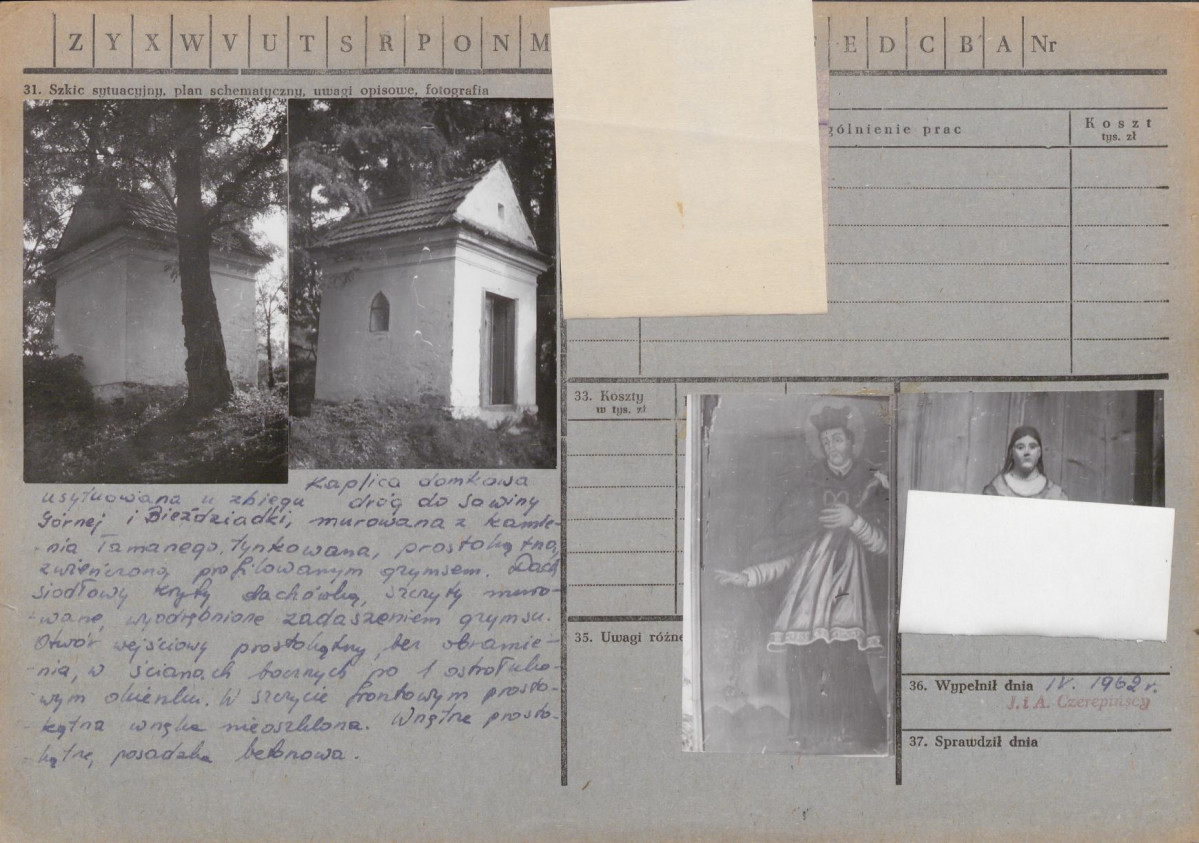 Z Y X W V U T S R P O N M E D C B A Nr
31. Szkic sytuacyjny, plan schematyczny, uwagi opisowe, fotografia
gólnienie prac
Koszt
tys. zł
33. Koszty
w tys. zł
Kaplica domkowa
usytuowana u zbiegu dróg do Sowiny
Górnej i Bieździadki, murowana z kamie-
nia łamanego, tynkowana, prostokątna,
zwieńczona profilowanym gzymsem. Dach
siodłowy kryty dachówką, szczyty muro-
wane, wyodrębnione zadaszeniem gzymsu.
Otwór wejściowy prostokątny, bez obramie-
nia, w ścianach bocznych po 1 ostrołuko-
wym okienku. W szczycie frontowym prosto-
kątna wnęka nieoszklona. Wnętrze prosto-
kątne, posadzka betonowa.
35. Uwagi różne
36. Wypełnił dnia IV. 1962 r.
J. i A. Czerepińscy
37. Sprawdził dnia